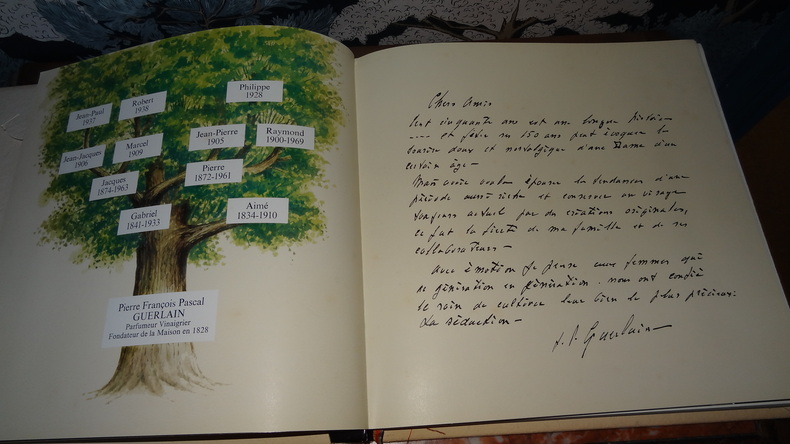 Philippe
1928
Robert
1938
Jean-Paul
1937
Jean-Pierre
1905
Raymond
1900-1969
Marcel
1909
Jean-Jacques
1906
Pierre
1872-1961
Jacques
1874-1963
Gabriel
1841-1933
Aimé
1834-1910
Pierre François Pascal
GUERLAIN
Parfumeur Vinaigrier
Fondateur de la Maison en 1828
Chers Amis
Cent cinquante ans est une longue histoire
---- et fêter ses 150 ans peut évoquer le
sourire doux et nostalgique d'une Dame d'un
certain âge -
Mais avoir épouser les tendances d'une
période aussi riche et conserver un visage
toujours actuel par des créations originales,
ce fut la fierté de ma famille et de ses
collaborateurs -
Avec émotion je pense aux femmes qui
de génération en génération nous ont confié
le soin de cultiver leur bien le plus précieux:
La séduction -
J.P. Guerlain